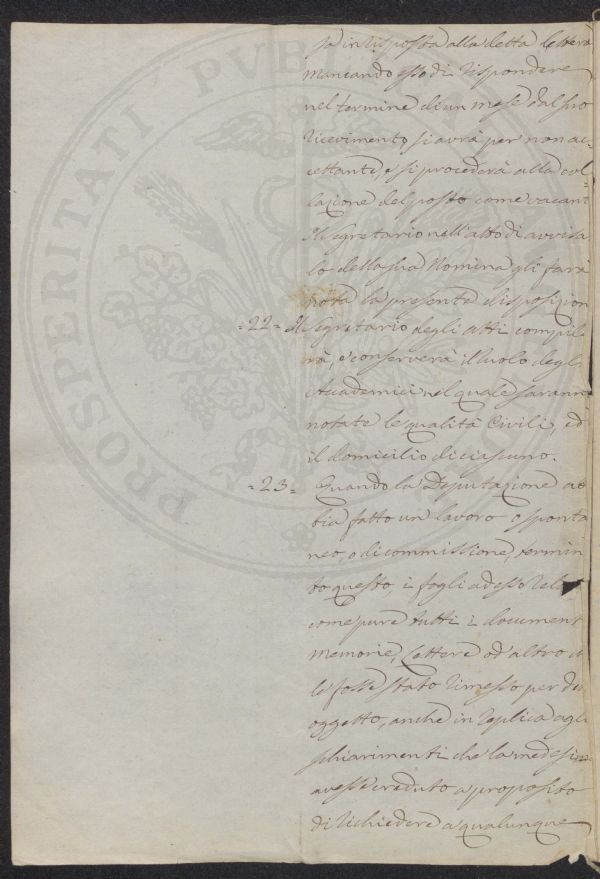 sa in risposta alla detta lettera
mancando esso di rispondere
nel termine di un mese dal suo
ricevimento si avrà per non ac=
cettante, e si procederà alla col=
lazione del posto come vacant
Il Segretario nell'atto di avvisa
lo della sua Nomina gli farà
nota la presente disposizion
=22= Il Segretario degli atti compile
rà, e conserverà il Ruolo degli
Accademici nel quale saranno
notate le qualità Civili, ed
il domicilio di ciascuno.
=23= Quando la Deputazione ab
bia fatto un lavoro o sponta
neo, o di commissione, termin
to questo, i fogli ad esso rela
come pure tutti i document
Memorie, Lettere od altro
le fosse stato rimesso per
oggetto, anche in replica agli
schiarimenti che la medesima
avesse creduto a proposito
di richiedere a qualunque
PROSPERITATI PVBLICAE